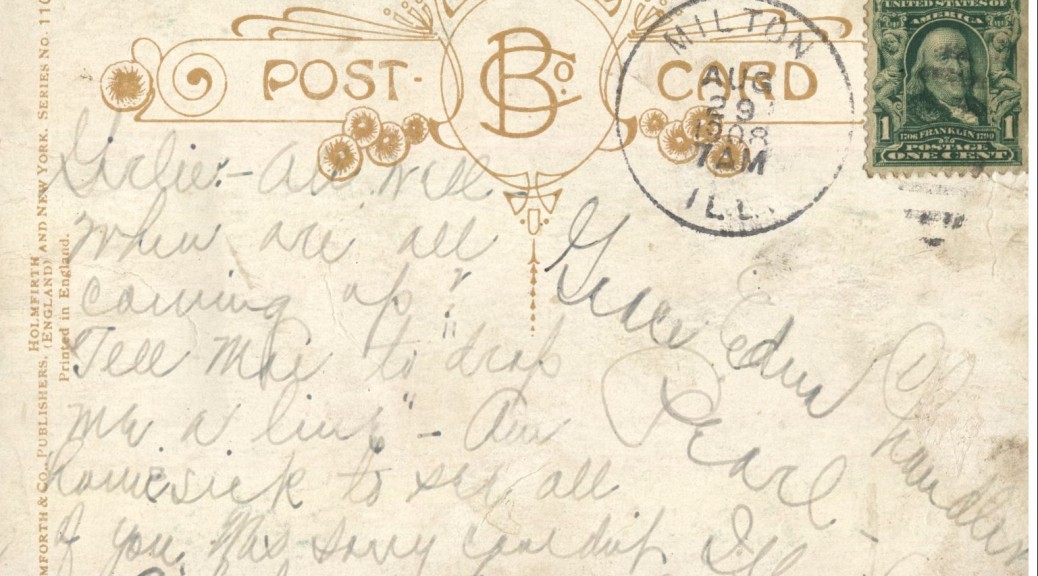 POST- B Co CARD
MILTON
AUG
29
1908
7AM
ILL.
UNITED STATES OF
AMERICA
1 1706 FRANKLIN 1790 1
POSTAGE
ONE CENT
MFORTH & CO., PUBLISHERS, HOLMFIRTH (ENGLAND) AND NEW YORK. SERIES No. 110
Printed in England.
Girlie:- All well
When are all
coming up?
"Tell Mae to drop
me a line" - Am
homesick to see all
of you. Was sorry couldn't
Grace Edna
Pearl
Chandler